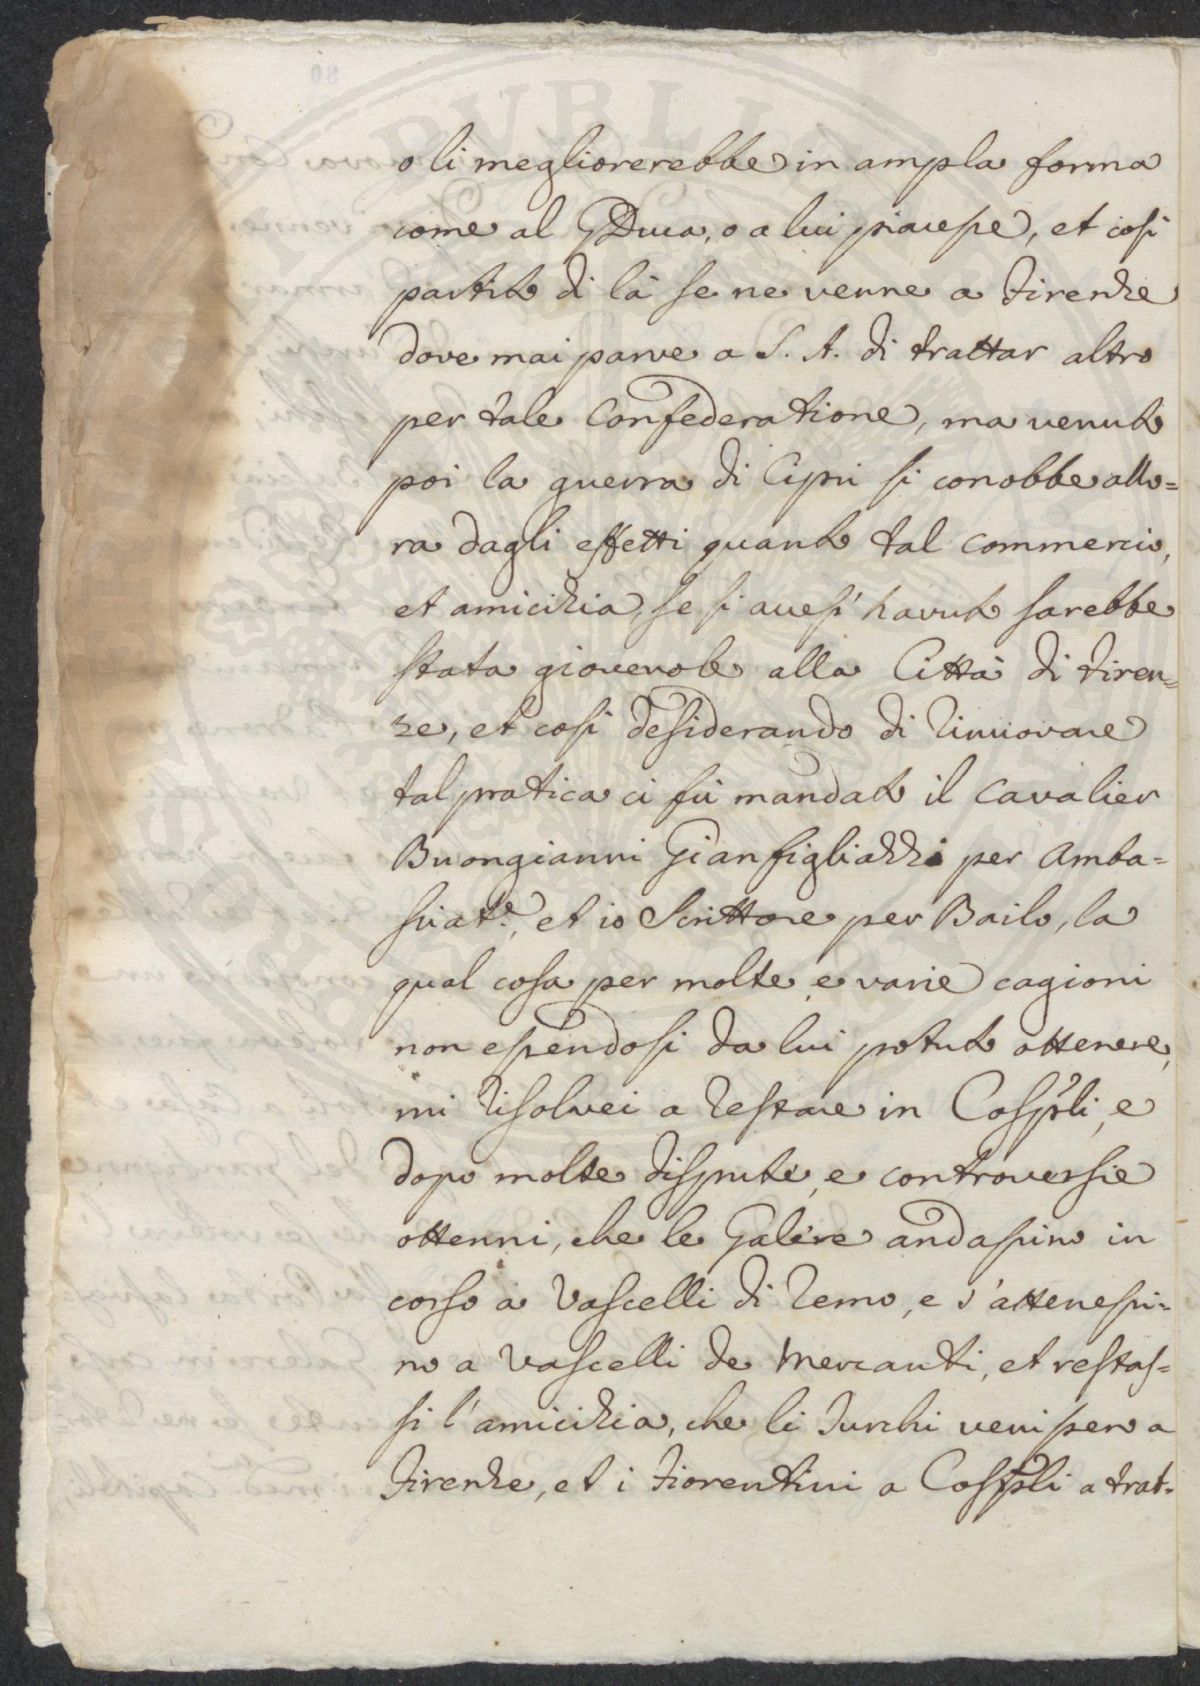 o li megliorerebbe in ampla forma
come al GDuca, o a lui piacesse, et così
partito di là se ne venne a Firenze
dove mai parve a S. A. di trattar altro
per tale Confederatione, ma venuto
poi la guerra di Cipri si conobbe allo=
ra dagli effetti quanto tal commercio,
et amicizia, se si avessi havuto sarebbe
stata giovevole alla Città di Firen=
ze, et così desiderando di rinnovare
tal pratica ci fù mandato il Cavalier
Buongianni Gianfigliazzi per Amba=
sciat.e, et io Scrittore per Bailo, la
qual cosa per molte, e varie cagioni
non essendosi da lui potuto ottenere,
mi risolvei a restare in Cospoli, e
dopo molte dispute, e controversie
ottenni, che le Galere andassino in
corso a Vascelli di remo, e s'attenessi=
no a Vascelli de Mercanti, et restas=
si l'amicizia, che li Turchi venissero a
Firenze, et i Fiorentini a Cospoli a trat=